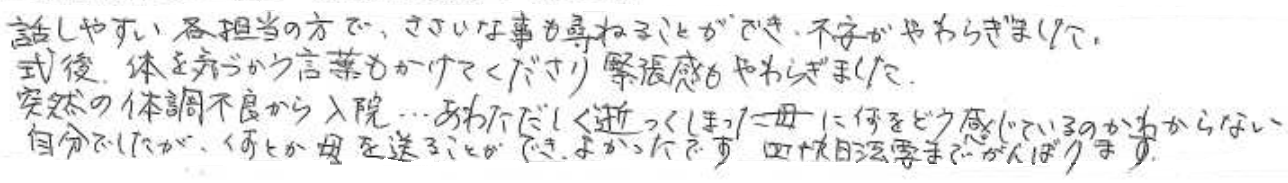 話しやすい各担当の方で、ささいな事も尋ねることができ、不安がやわらぎました。
式後、体を気づかう言葉もかけてくださり緊張感もやわらぎました。
突然の体調不良から入院…あわただしく逝ってしまった母に何をどう感じているのかわからない
自分でしたが、何とか母を送ることができ、よかったです 四十九日法要までがんばります。